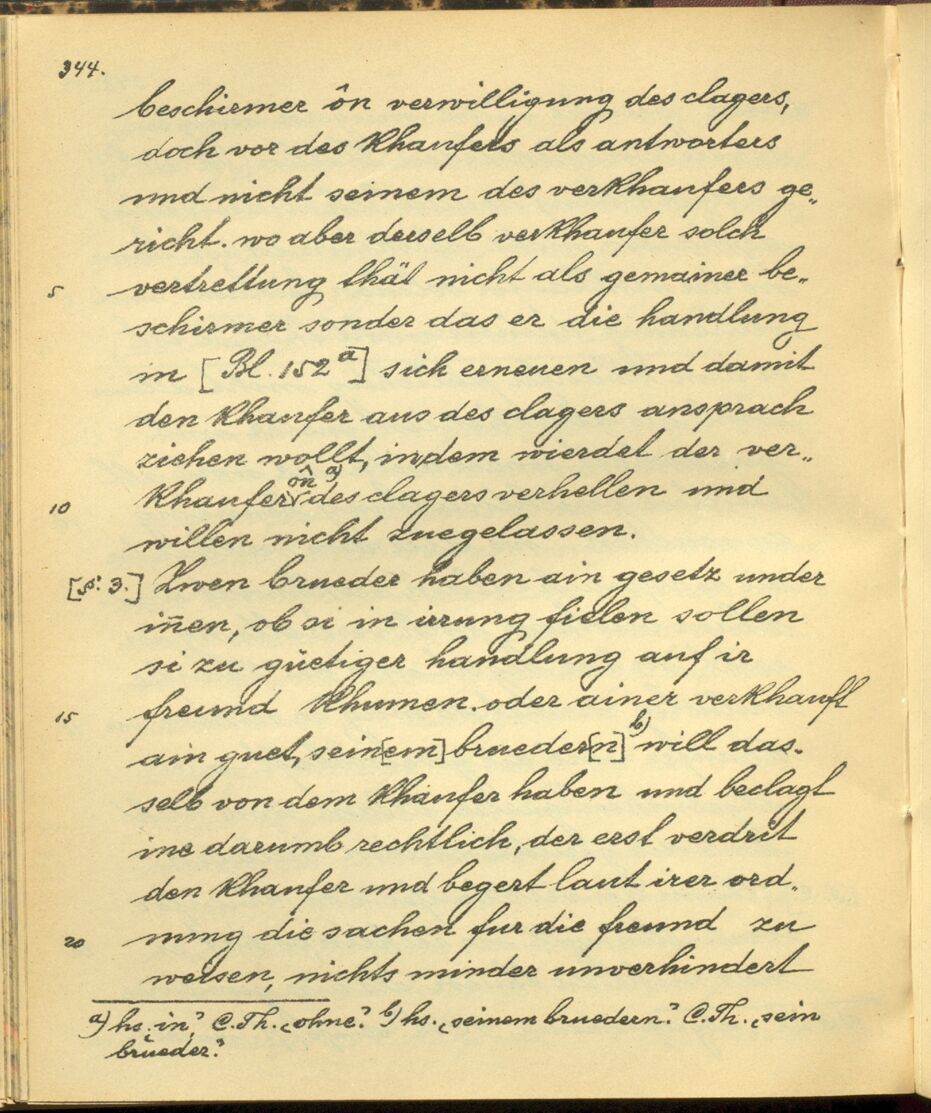 344.
beschirmer ôn verwilligung des clagers,
doch vor des khaufers als antworters
und nicht seinem des verkhaufers ge„
richt. wo aber derselb verkhaufer solch
5 vertrettung thät nicht als gemainer be„
schirmer sonder das er die handlung
in [Bl. 152 a] sich erneuen und damit
den khaufer aus des clagers ansprach
ziehen wollt, in dem wierdet der ver„
10 khaufer ôn a) des clagers verhellen und
willen nicht zuegelassen.
[§: 3.] Zwen brueder haben ain gesetz under
iñen, ob si in irrung fielen sollen
si zu güetiger handlung auf ir
15 freund khumen. oder ainer verkhauft
ain guet, sein[em] brueder[n] b) will das„
selb von dem khaufer haben und beclagt
ine darumb rechtlich, der erst verdrit
den khaufer und begert laut irer ord„
20 nung die sachen fur die freund zu
weisen, nichts minder unverhindert
a) hs. „in”, C.Th. „ohne”. b) hs. „seinem bruedern”. C.Th. „sein
brueder.”